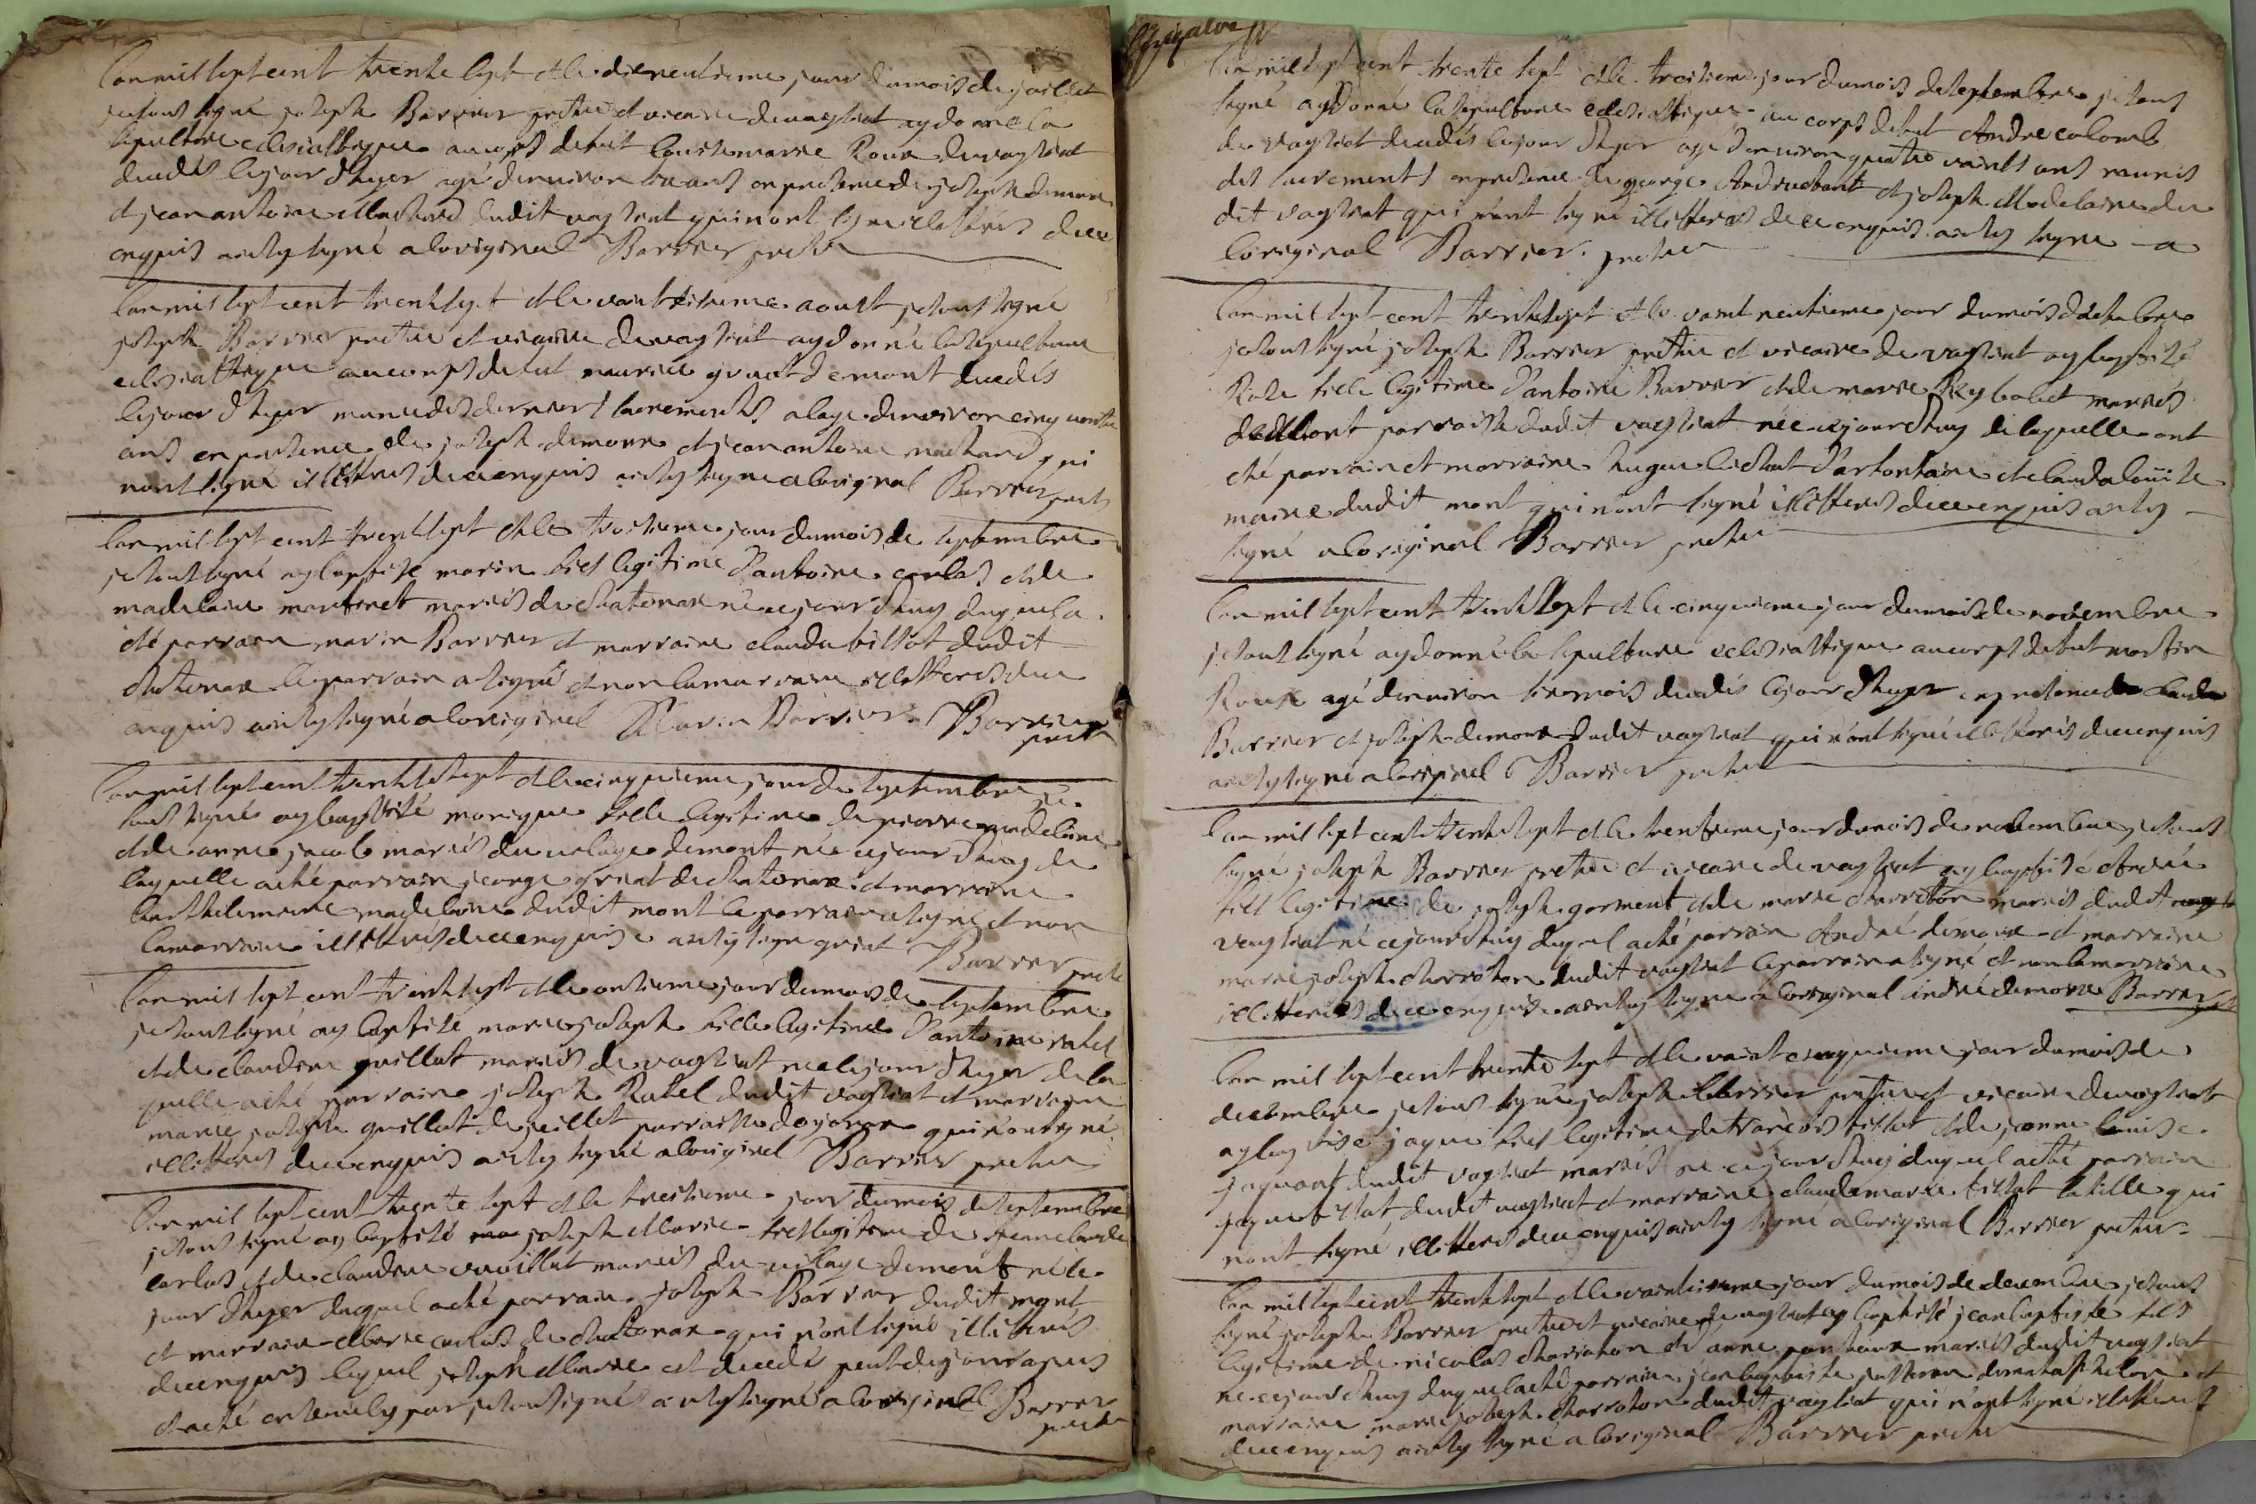 Lan mil sept cent trente sept et le dixneufvieme jour du mois de juillet
je sous signé joseph Barrier pretre et vicaire de vaysiat ay donné la
sepulture eclesiastique au corps de fut Louise marie Roux de vaysiat
decedés le jour d'hyer agé denviron ans en presence de joseph demoux
et jean antoine Machard dudit vaysiat qui n'ont signé illetterés de ce
enquis ainsy signé a loriginal Barrier pretre
Lan mil sept cent trente sept et le vaint aoust je sous signé
joseph Barrier pretre et vicaire de vaysiat ay donné la sepulture
eclesiastique au corps de fut maurice gruat de mont decedés
le jour d'hyer muni des derniers sacrements a lage denviron cinquante
ans en presence de joseph demoux et jean antoine machard qui
n'ont signé illetterés de ce enquis ainsy signé a loriginal Barrier pretre
Lan mil sept cent trente sept et le troisieme jour du mois de septembre
je sous signé ay baptisé marin fils legitime d'antoine carlas et de
madelaine martinet mariés de chatonax né ce jourd'huy duquel a
été parrain marin Barrier et marraine clauda billiat dudit
chatonax le parrain a signé et non la marraine illetterés de ce
enquis ainsy signé a loriginel Marin Barrier. Barrier
pretre
Lan mil sept cent trente sept et le cinquieme jour de septembre je
sous signé ay baptisé monique fille legitime de pierre madelaine
et de anne jacob mariés du vilage de mont née ce jourd'huy de
laquelle a eté parrain george gruat de chatonax et marraine
barthelemie madelaine dudit mont le parrain a signé et non
la marraine illetterés de ce enquise ainsy signé gruat Barrier pretre
Lan mil sept cent trente sept et le onzieme jour du mois de septembre
je sous signé ay baptisé marie joseph fille legitime d'antoine ratel
et de claudine guillot mariés de vaysiat née le jour d'hyer de la
quelle a eté parrain joseph Ratel dudit vaysiat et marraine
marie joseph guillot de jeillet parroisse doyonax qui n'ont signé
illetterés de ce enquis ainsy signé a loriginel Barrier pretre
Lan mil sept cent trente sept et le treisieme jour du mois de septembre
je sous signé ay baptisé joseph Marie fils legitime de jean claude
carlas et de claudine cuvillat mariés du village de mont né le
jour d'hyer duquel a eté parrain joseph Barrier dudit mont
et marraine Marie carlas de chatonax qui n'ont signé illetterés
de ce enquis lequel joseph Marie est decedé peut de jour apres
et a eté enseuely par je sous signés ainsy signé a loriginel Barrier
pretre
Lan mil sept cent trente sept et le treisieme jour du mois de septembre je sous
signé ay donné la sepulture eclesiastique au corps de fut André colomb
de vaysiat decedés le jour d'hyer agé d'environ quatre vaints ans munis
des sacrements en presence de george et joseph Madelaine du
dit vaysiat qui n'ont signé illetterés de ce enquis ainsy signé a
loriginal Barrier. pretre
Lan mil sept cent trente sept et le vaint neufieme jour du mois d'octobre
je sous signé joseph Barrier pretre et vicaire de vaysiat ay baptisé
Roze fille legitime d'antoine Barrier et de marie Reybolet mariés
de Mont parroisse dudit vaysiat née ce jourd'huy de laquelle ont
été parrain et marraine hugue et clauda louise
maire dudit mont qui n'ont signé illetterés de ce enquis ainsy
signé a loriginel Barrier pretre
Lan mil sept cent trente sept et le cinquieme jour du mois de novembre
je sous signé ay donné la sepulture eclesiastique au corps de fut martin
Roux agé denviron six mois decedés le jour d'hyer en presence de claude
Barrier et joseph demoux dudit vaysiat qui n'ont signé illetterés de ce enquis
ainsy signé a loriginel Barrier pretre
Lan mil sept cent trente sept et le trentieme jour du mois de novembre je sous
signé joseph Barrier pretre et vicaire de vaysiat ay baptisé André
fils legitime de joseph gorment et de marie charreton mariés dudit
vaysiat né ce jourd'huy duquel a eté parrain André demoux et marraine
marie joseph charroton dudit vaysiat le parrain a signé et non la marraine
illetterés de ce enquise ainsy signé a loriginal andré demoux Barrier ptre
Lan mil sept cent trente sept et le vaint cinquieme jour du mois de
decembre je sous signé joseph Barrier pretre et vicaire de vaysiat
ay baptisé jaque fils legitime de françois billot et de jeanne louise
jaquant dudit vaysiat mariés né ce jourd'huy duquel a eté parrain
jaque billot dudit vaysiat et marraine claude marie billot sa fille qui
n'ont signé illetterés de ce enquis ainsy signé a loriginel Barrier pretre
Lan mil sept cent trente sept et le jour du mois de decembre je sous
signé joseph Barrier pretre et vicaire de vaysiat ay baptisé jean baptiste fils
legitime de nicolas charroton et d'anne mariés dudit vaysiat
né ce jourd'huy duquel a eté parrain jean baptiste et
marraine marie joseph charroton dudit vaysiat qui n'ont signé illetterés
de ce enquis ainsy signé a loriginel Barrier pretre